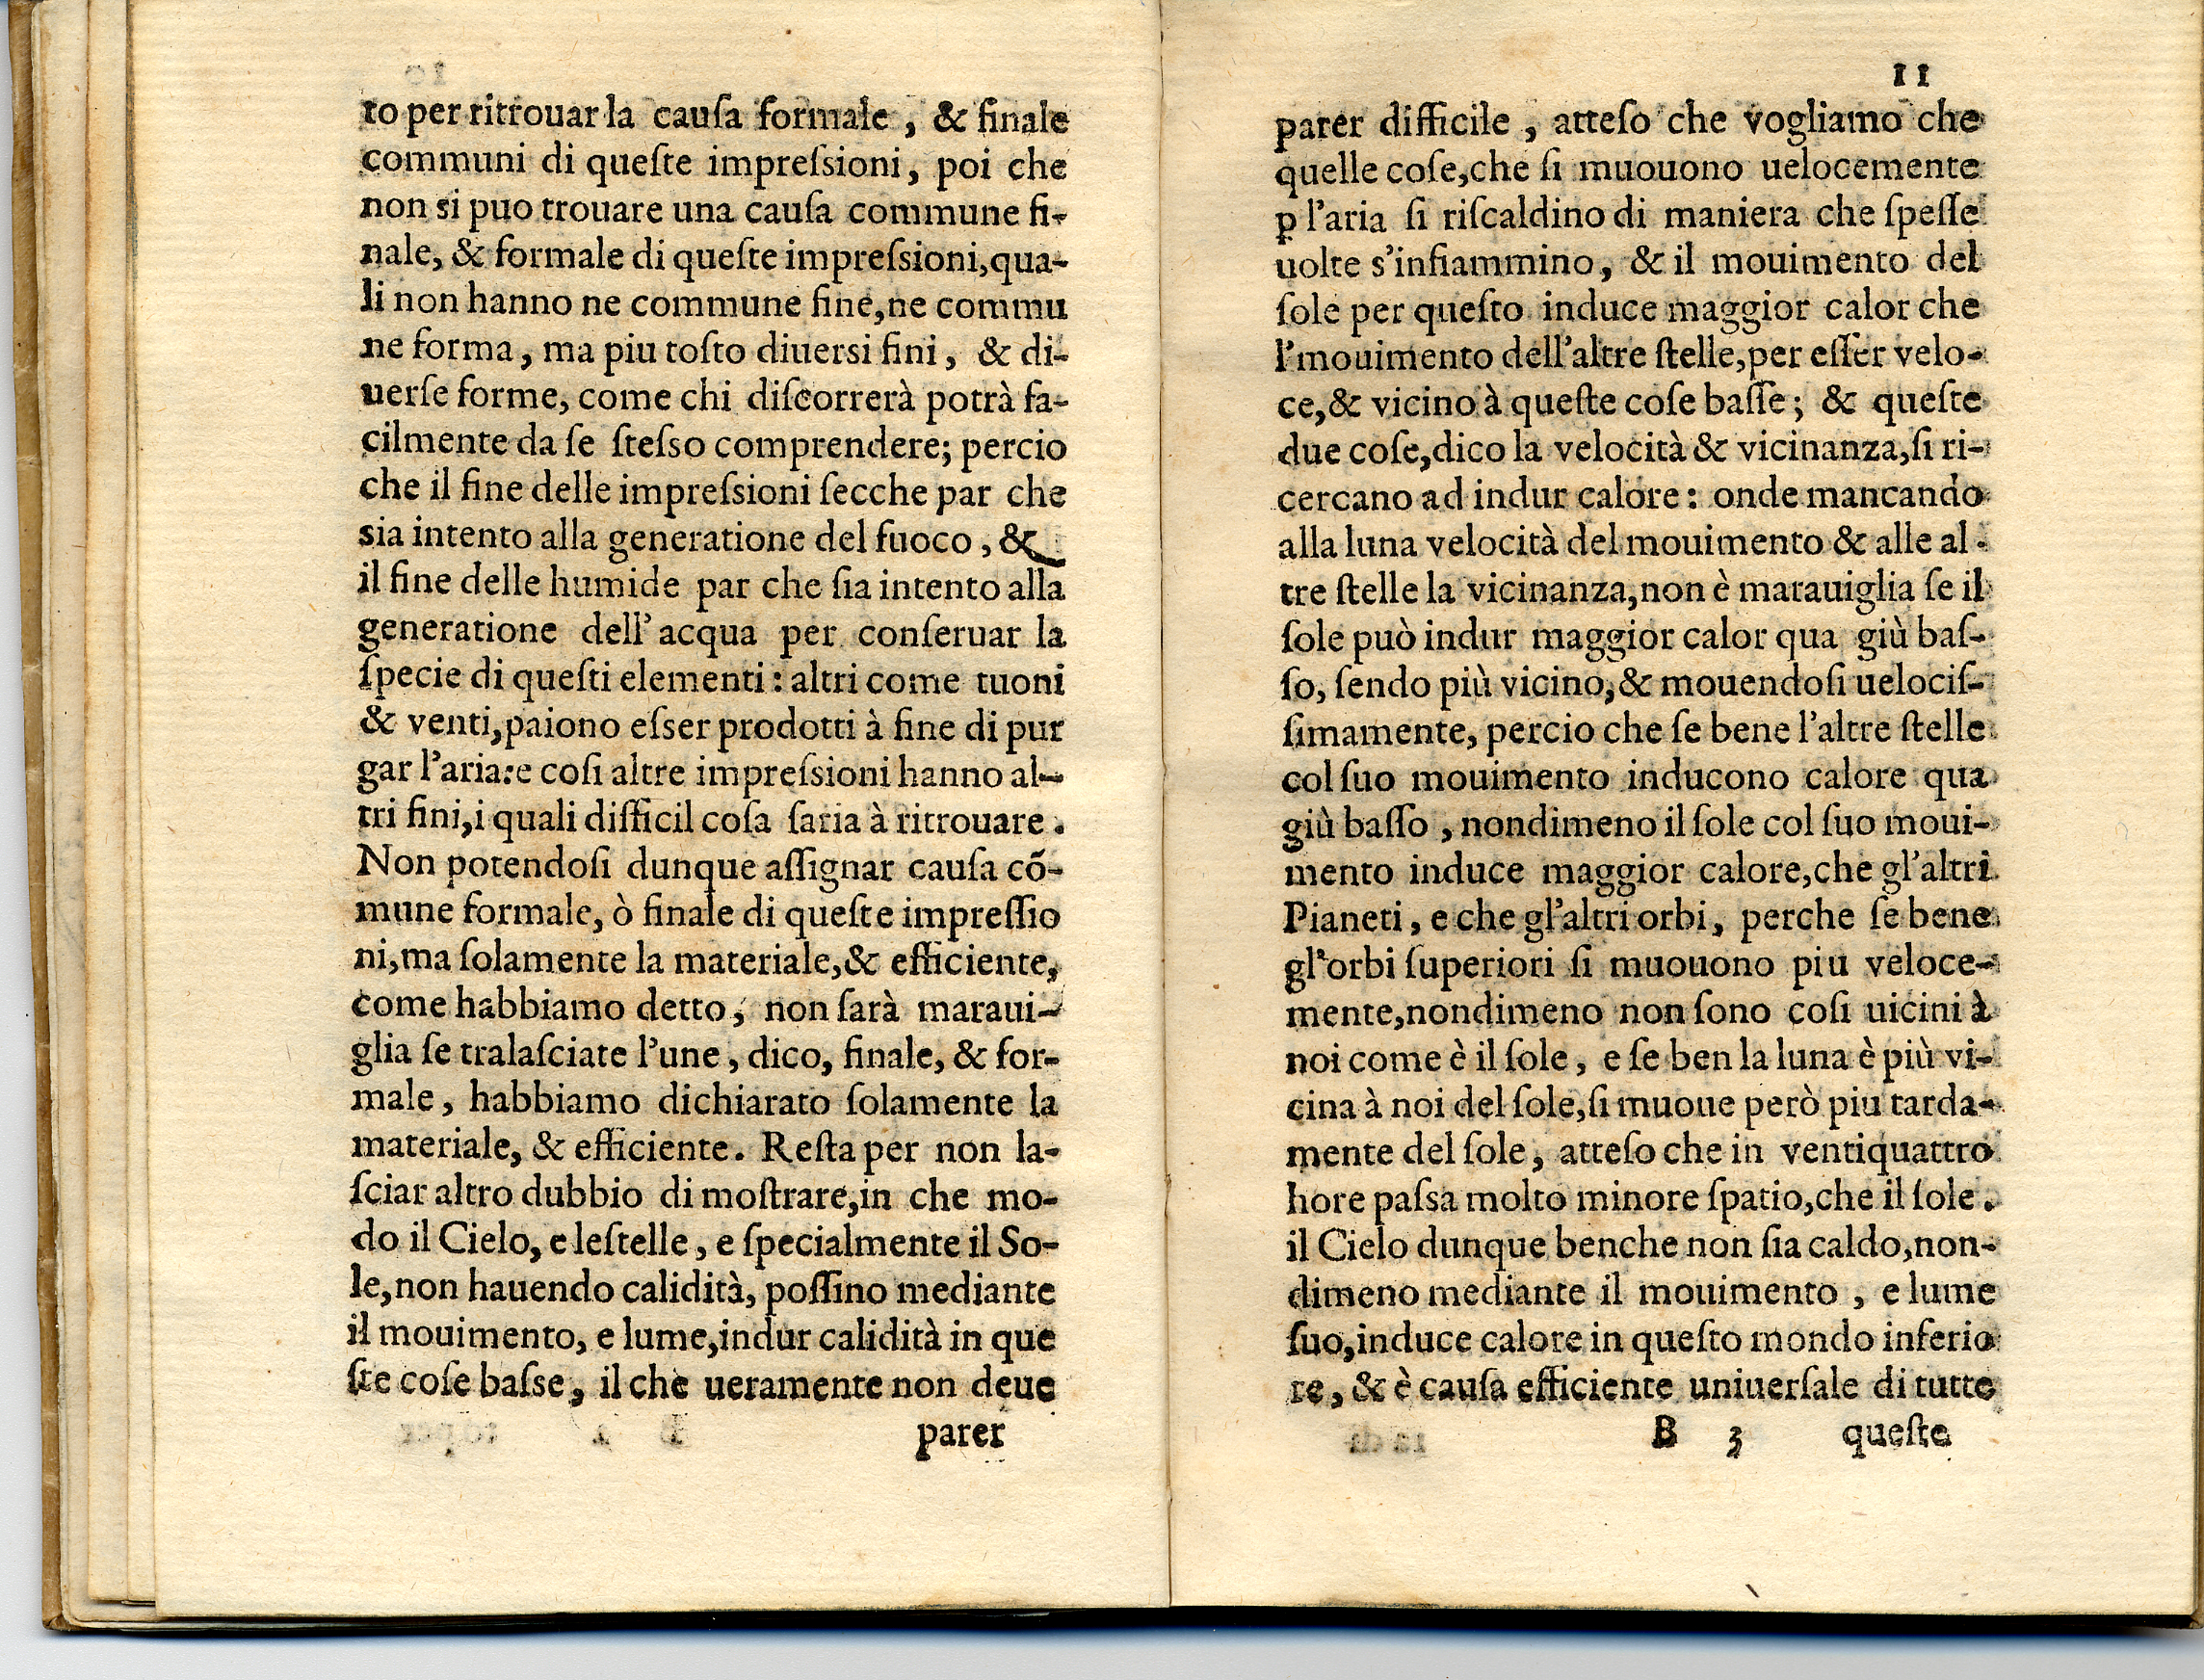 to per ritrouar la cauſa formale, & finale
communi di queſte impreſsioni, poi che
non si puo trouare una cauſa commune fi-
nale, & formale di queſte impreſsioni,qua-
li non hanno ne commune fine,ne commu
ne forma, ma piu toſto diuersi fini, & di-
uerſe forme, come chi diſcorrerà potrà fa-
cilmente da ſe ſteſso comprendere; percio
che il fine delle impreſsioni ſecche par che
sia intento alla generatione del fuoco, &
il fine delle humide par che ſia intento alla
generatione dell'acqua per conſeruar la
ſpecie di queſti elementi: altri come tuoni
& venti,paiono eſser prodotti à fine di pur
gar l'aria:e coſi altre impreſsioni hanno al-
tri fini,i quali difficil coſa ſaria à ritrouare.
Non potendoſi dunque aſſignar cauſa cõ-
mune formale, ò finale di queſte impreſſio
ni,ma ſolamente la materiale,& efficiente,
come habbiamo detto, non ſarà maraui-
glia ſe tralaſciate l'une, dico, finale, & for-
male, habbiamo dichiarato ſolamente la
materiale, & efficiente. Reſta per non la-
ſciar altro dubbio di moſtrare,in che mo-
do il Cielo, e leſtelle, e ſpecialmente il So-
le,non hauendo calidità, poſſino mediante
il mouimento, e lume,indur calidità in que
ſte coſe baſse, il che ueramente non deue
parer
11
parer difficile, atteſo che vogliamo che
quelle coſe,che ſi muouono uelocemente
ꝑ l'aria ſi riſcaldino di maniera che ſpeſſe
uolte s'infiammino, & il mouimento del
ſole per queſto induce maggior calor che
l'mouimento dell'altre ſtelle,per eſſer velo-
ce,& vicino à queſte coſe baſſe; & queſte
due coſe,dico la velocità & vicinanza,ſi ri-
cercano ad indur calore: onde mancando
alla luna velocità del mouimento & alle al-
tre ſtelle la vicinanza,non è marauiglia ſe il
ſole può indur maggior calor qua giù baſ-
ſo, ſendo più vicino,& mouendoſi uelociſ-
ſimamente, percio che ſe bene l'altre ſtelle
col ſuo mouimento inducono calore qua
giù baſſo, nondimeno il ſole col ſuo moui-
mento induce maggior calore,che gl'altri
Pianeti, e che gl'altri orbi, perche ſe bene
gl'orbi ſuperiori ſi muouono piu veloce-
mente,nondimeno non ſono coſi uicini à
noi come è il ſole, e ſe ben la luna è più vi-
cina à noi del ſole,ſi muoue però piu tarda-
mente del ſole, atteſo che in ventiquattro
hore paſsa molto minore ſpatio,che il ſole.
il Cielo dunque benche non ſia caldo,non-
dimeno mediante il mouimento, e lume
ſuo,induce calore in queſto mondo inferio
re, & è cauſa efficiente uniuerſale di tutte
B 3 queſte